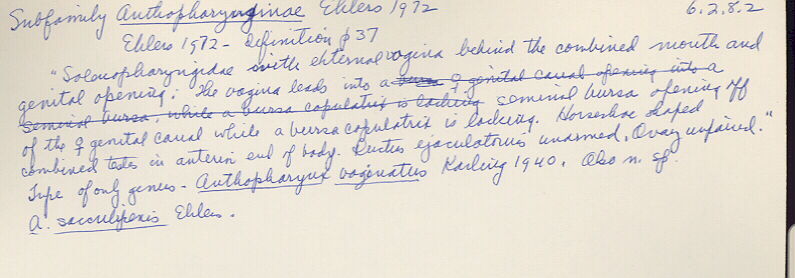 Subfamily Anthopharynginae Ehlers 1972 6.2.8.2
Ehlers 1972 - definition p 37
"Solenopharyngidae with external vagina behind the combined mouth and
genital opening. The vagina leads into a bursa ♀ genital canal opening into a
seminal bursa, while a bursa copulatrix is lacking seminal bursa opening off
of the ♀ genital canal while a bursa copulatrix is lacking. Horseshoe shaped
combined testes in anterior end of body. Ductus ejaculatorius unarmed. Ovary unpaired."
Type of only genus - Anthopharynx vaginatus Karling 1940. Also n. sp.
A. sacculipenis Ehlers.